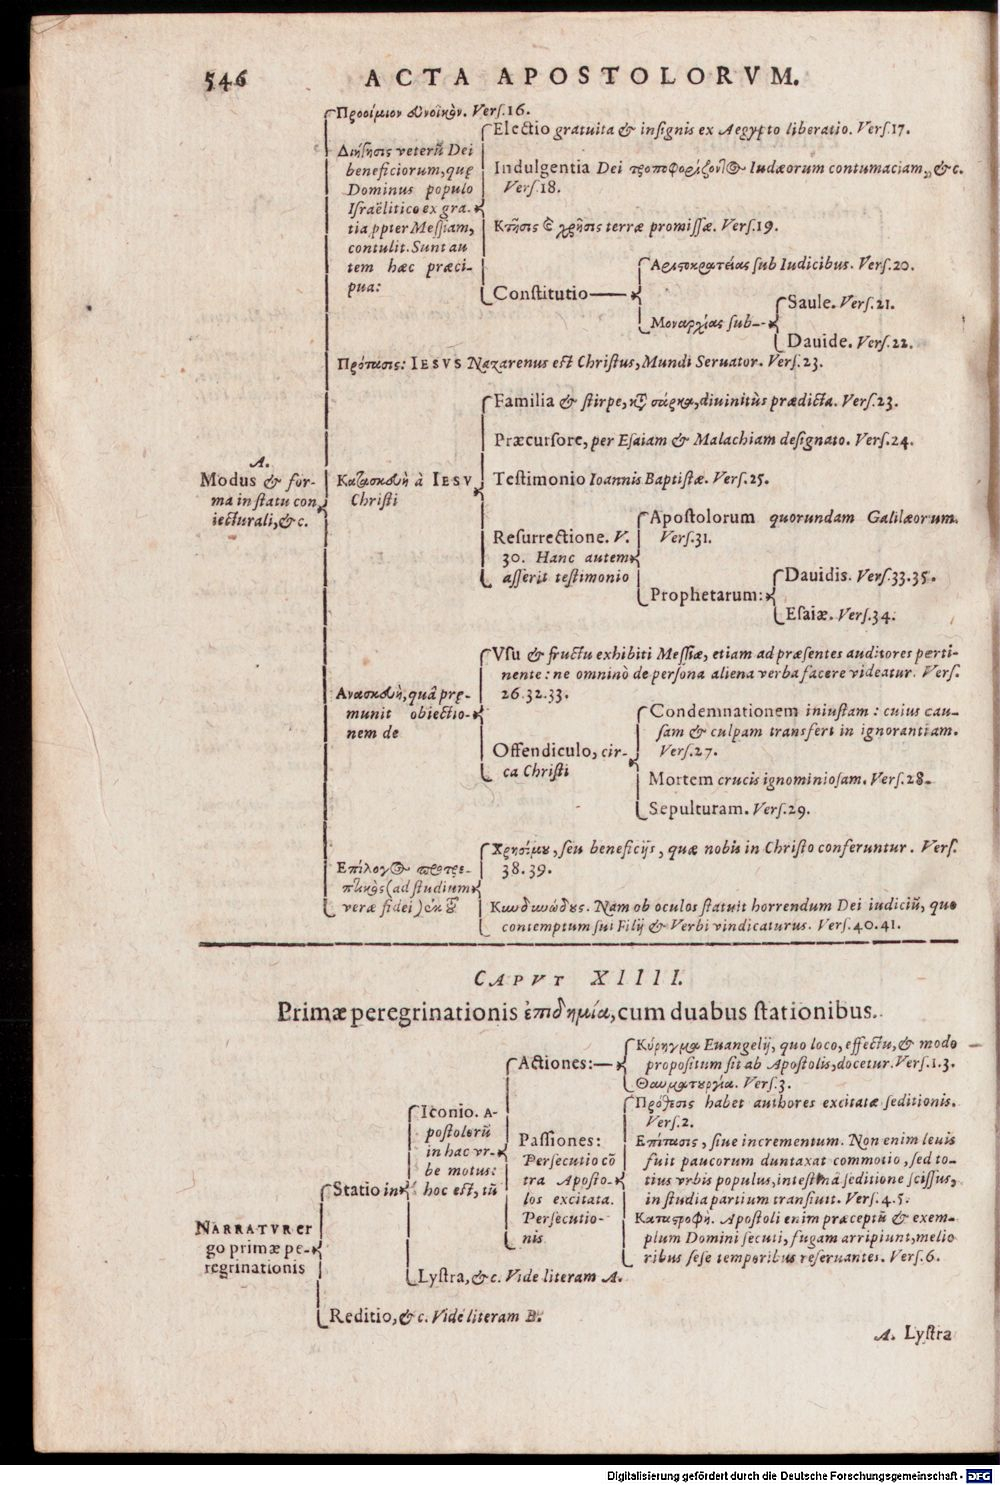 546
ACTA APOSTOLORVM.
Προοίμιον εὐνοϊκὸν. Verſ.16.
Διήγησις veterũ Dei
beneficiorum, quę
Dominus populo
Iſraëlitico ex gra-
tia ꝓpter Meſſiam,
contulit. Sunt au
tem hæc præci-
pua:
Electio gratuita & inſignis ex Aegypto liberatio. Verſ.17.
Indulgentia Dei τροποφορίζοντ(Ο) Iudæorum contumaciam,, &c.
Verſ.18.
Κτῆσις & χρῆσις terræ promiſſæ. Verſ.19.
Conſtitutio
Αριστοκρατείας ſub Iudicibus. Verſ.20.
Μοναρχίας ſub--
Saule. Verſ.21.
Dauide. Verſ.22.
Πρότασις: IESVS Nazarenus est Chriſtus, Mundi Seruator. Verſ.23.
A.
Modus & for-
ma in ſtatu con
iecturali, &c.
Κατασκευὴ à IESV
Chriſti
Familia & ſtirpe, κατ σάρκα, diuinitùs prædicta. Verſ.23.
Præcurſore, per Eſaiam & Malachiam deſignato. Verſ.24.
Teſtimonio Ioannis Baptiſtæ. Verſ.25.
Reſurrectione. V.
30. Hanc autem
aſſerit teſtimonio
Apoſtolorum quorundam Galilæorum.
Verſ.31.
Prophetarum:
Dauidis. Verſ.33.35.
Eſaiæ. Verſ.34.
Ανασκευὴ, quâ prę-
munit obiectio-
nem de
Vſu & fructu exhibiti Meſſiæ, etiam ad præſentes auditores perti-
nente: ne omninò de perſona aliena verba facere videatur. Verſ.
26.32.33.
Offendiculo, cir-
ca Chriſti
Condemnationem iniuſtam: cuius cau-
ſam & culpam transfert in ignorantiam.
Verſ.27.
Mortem crucis ignominioſam. Verſ.28.
Sepulturam. Verſ.29.
Επίλογος προτρε-
πτικὸς (ad ſtudium
veræ fidei) ἐκ τοῦ
Χρησίμου, ſeu beneficijs, quæ nobis in Chriſto conferuntur. Verſ.
38.39.
Κινδυνώδους. Nam ob oculos ſtatuit horrendum Dei iudiciũ, quo
contemptum ſui Filij & Verbi vindicaturus. Verſ.40.41.
CAPVT XIIII.
Primæ peregrinationis ἐπιδημία, cum duabus ſtationibus.
NARRATVR er
go primæ pe-
regrinationis
Statio in
Iconio. A-
poſtolorũ
in hac vr-
be motus:
hoc eſt, tũ
Actiones:
Κύρηγμα Euangelij, quo loco, effectu, & modo
propoſitum ſit ab Apoſtolis, docetur. Verſ.1.3.
Θαυματουργία. Verſ.3.
Paſſiones:
Perſecutio cõ
tra Apoſto-
los excitata.
Perſecutio-
nis
Πρόθεσις habet authores excitatæ ſeditionis.
Verſ.2.
Επίτασις, ſiue incrementum. Non enim leuis
fuit paucorum duntaxat commotio, ſed to-
tius vrbis populus, inteſtina ſeditione ſciſſus,
in ſtudia partium tranſiuit. Verſ.4.5.
Καταστροφὴ. Apoſtoli enim præceptũ & exem-
plum Domini ſecuti, fugam arripiunt, melio
ribus ſeſe temporibus reſeruantes. Verſ.6.
Lyſtra, &c. Vide literam A.
Reditio, &c. Vide literam B.
A. Lyſtra
Digitalisierung gefördert durch die Deutsche Forschungsgemeinschaft - DFG